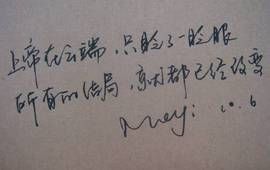 上帝在云端，只眨了一眨眼
所有的结局，都已经改变
10.6